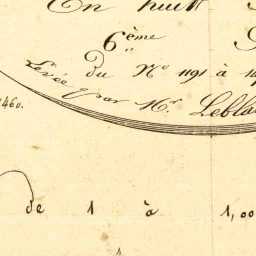 En huit
6.ème
du No 1191 à
Levée par Mr. Lebla
460.
de 1 à 1,00